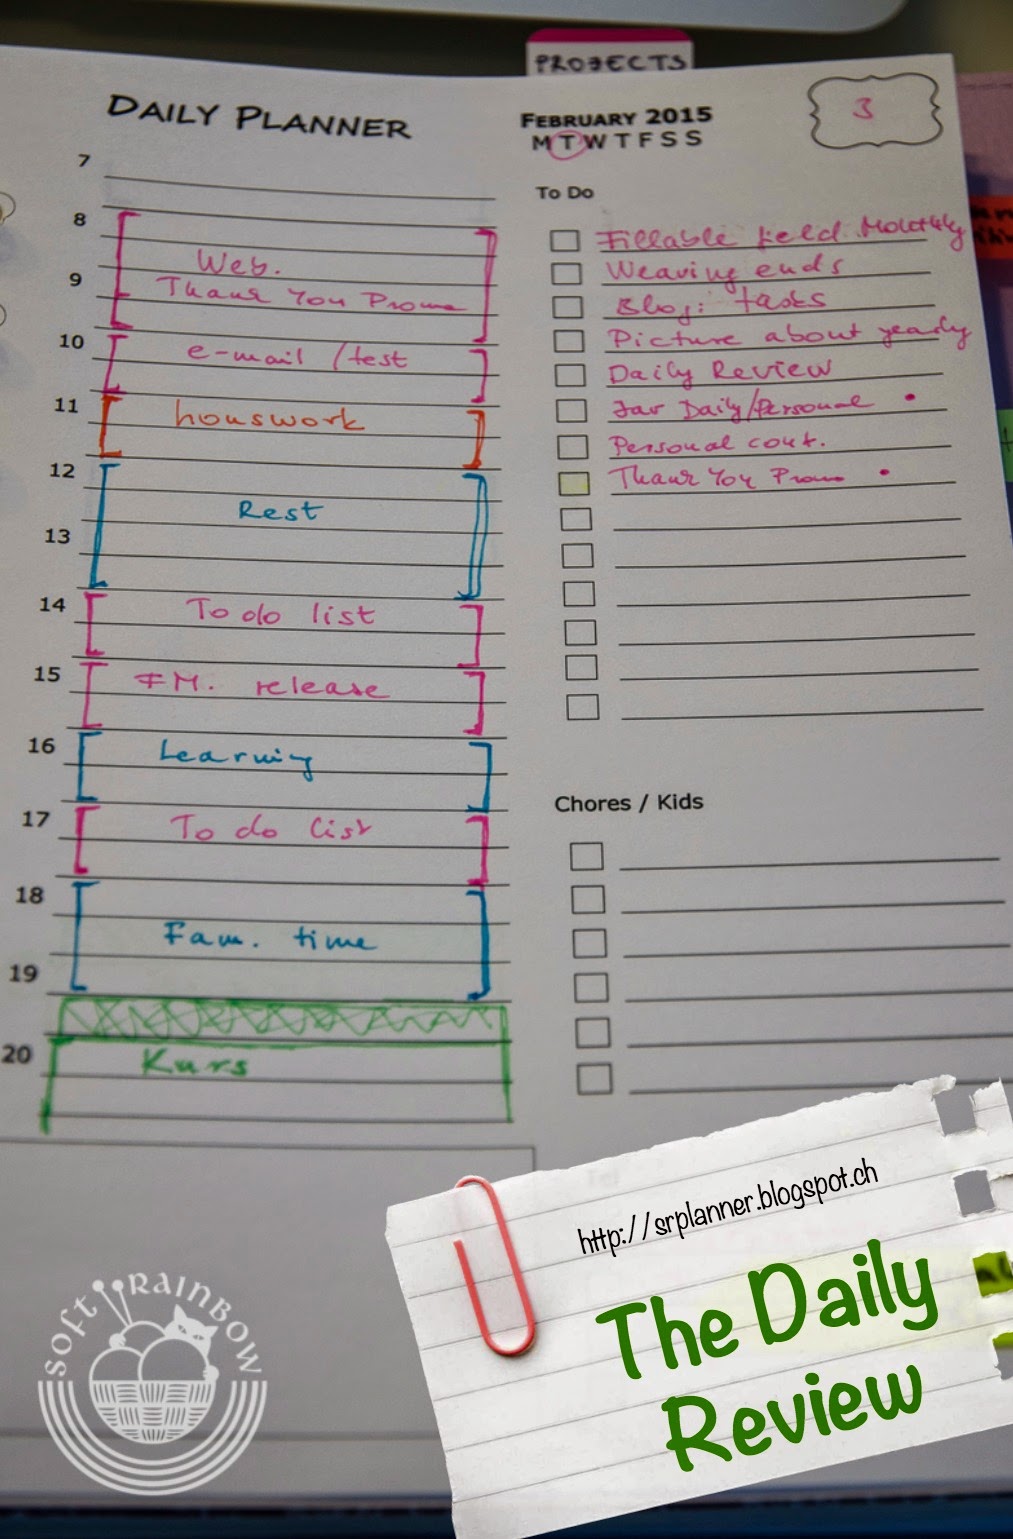 PROJECTS
DAILY PLANNER
FEBRUARY 2015
M T W T F S S
3
7
8
Web.
9
Thank You Promo
10
e-mail / test
11
houswork
12
Rest
13
14
To do list
15
FM. release
16
Learning
17
To do list
18
Fam. time
19
20
Kurs
To Do
Fillable field Monthly
Weaving ends
Blog: tasks
Picture about yearly
Daily Review
Jar Daily/Personal
Personal cont.
Thank You Promo
Chores / Kids
http://srplanner.blogspot.ch
The Daily
Review
SOFT RAINBOW